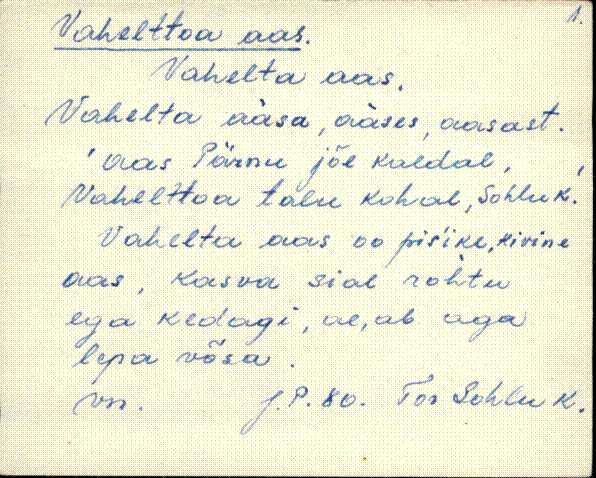 1.
Vahelttoa aas.
Vahelta aas.
Vahelta ààsa, ààses, aasast.
'aas Pärnu jõe kaldal,
Vahelttoa talu kohal, Sohlu k.'
Vahelta aas oo pis'ike, kivine
aas, kasva sial rohtu
ega kedagi, ae,ab aga
lepa võsa.
vn. J.P. 80. Tor Sohlu k.